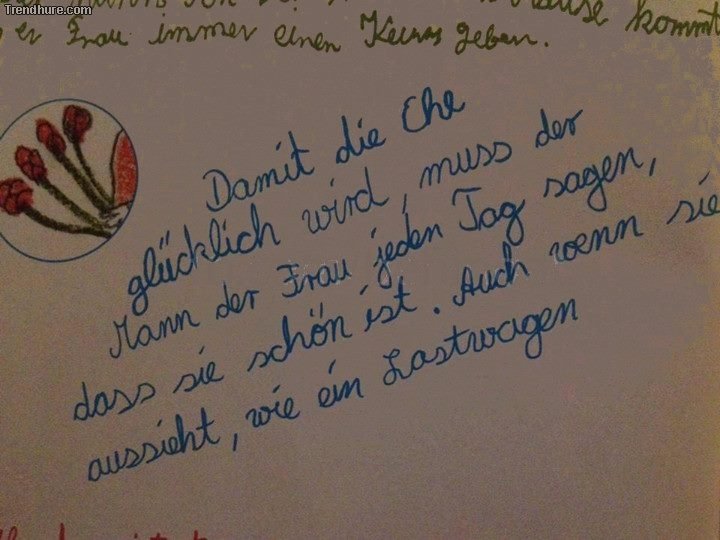 Trendhure.com
kommt
Frau immer einen Kuss geben.
Damit die Ehe
glücklich wird, muss der
Mann der Frau jeden Tag sagen,
dass sie schön ist. Auch wenn sie
aussieht, wie ein Lastwagen